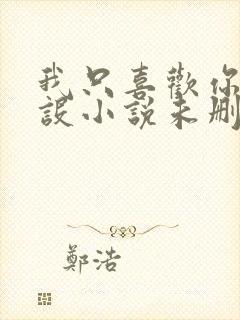 我只喜歡你
設小說未刪
鄭浩